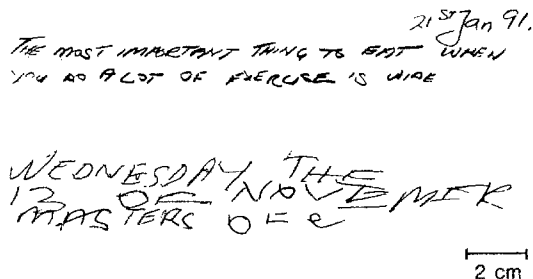 21st Jan 91.
THE MOST IMPORTANT THING TO EAT WHEN
YOU DO A LOT OF EXERCISE IS WIDE
WEDNESDAY THE
12 OF NOVEMER
MASTERS OF
2 cm